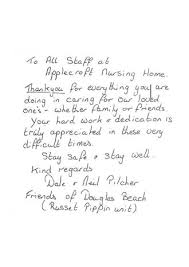 To All Staff at
Applecroft Nursing Home.
Thankyou for everything you are
doing in caring for our loved
one's - whether family or friends.
Your hard work & dedication is
truly appreciated in these very
difficult times.
Stay Safe & Stay well..
Kind regards
Dale & Neil Pitcher
Friends of Douglas Beach
(Russet Pippin unit)